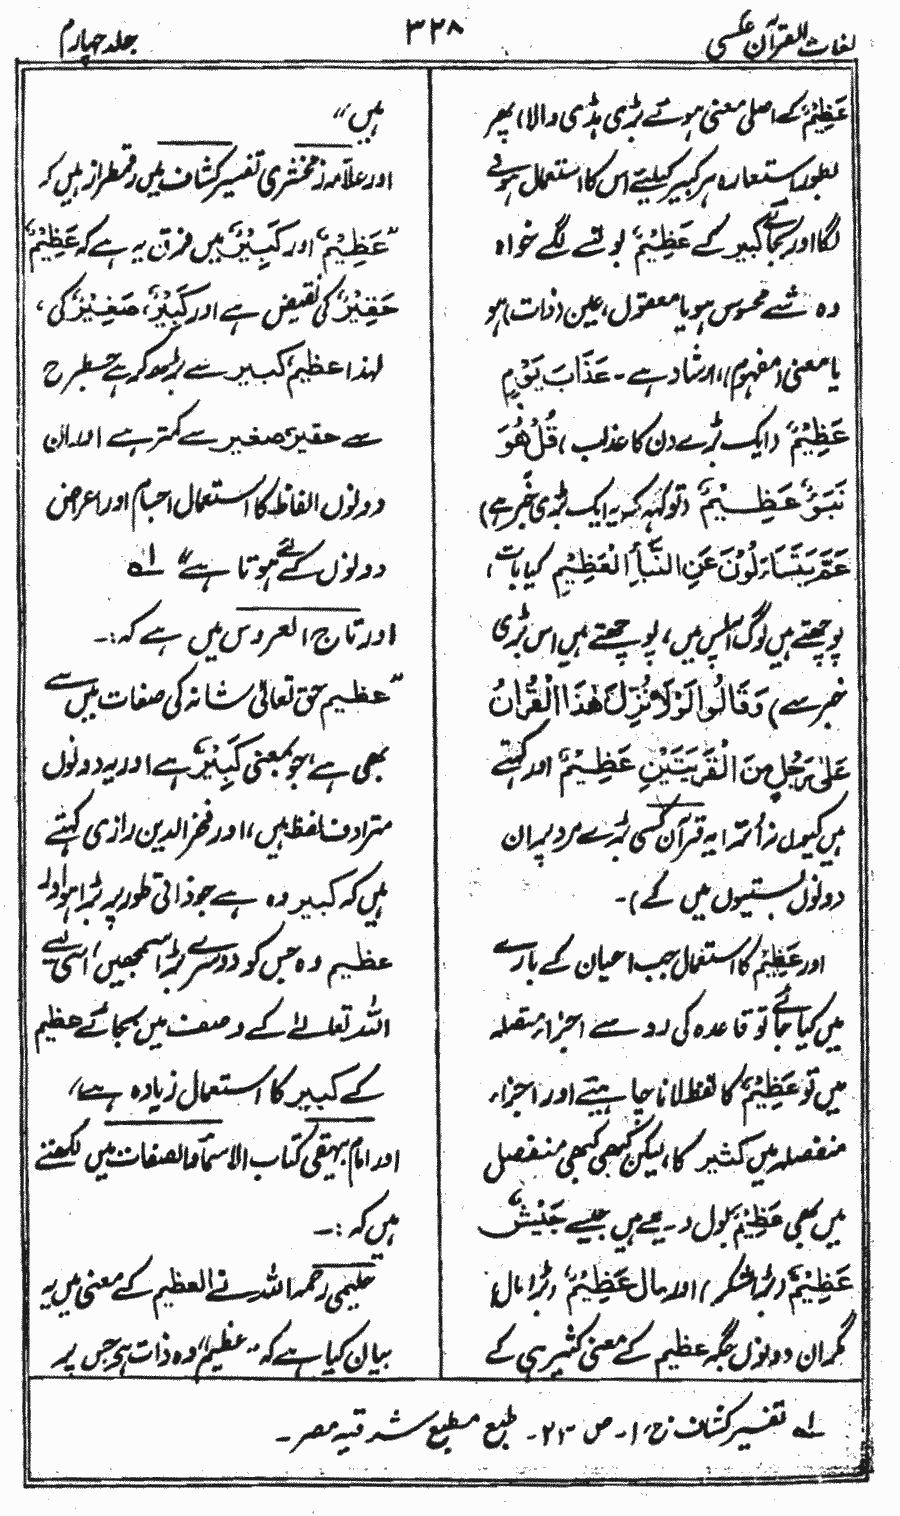 لغات القرآن عکسی
۳۲۸
جلد چہارم
عَظِیْمٌ کے اصلی معنی ہوئے بڑی ہڈی والا، پھر
بطور استعارہ ہر کبیر کیلئے اس کا استعمال ہونے
لگا اور بجائے کبیر کے عَظِیْمٌ بولنے لگے خواہ
وہ شے محسوس ہو یا معقول، عین (ذات) ہو
یا معنی (مفہوم)، ارشاد ہے۔ عَذَابَ یَوْمٍ
عَظِیْمٍ (ایک بڑے دن کا عذاب) قُلْ هُوَ
نَبَؤٌ عَظِیْمٌ (تو کہہ کہ یہ ایک بڑی خبر ہے)
عَمَّ یَتَسَآءَلُوْنَ عَنِ النَّبَاِ الْعَظِیْمِ (کیا بات
پوچھتے ہیں لوگ آپس میں، پوچھتے ہیں اس بڑی
خبر سے) وَقَالُوا لَوْلَا نُزِّلَ هٰذَا الْقُرْاٰنُ
عَلٰی رَجُلٍ مِّنَ الْقَرْیَتَیْنِ عَظِیْمٍ (اور کہتے
ہیں کیوں نہ اُترا یہ قرآن کسی بڑے مرد پر ان
دونوں بستیوں میں کے)۔
اور عَظِیْم کا استعمال جب اعیان کے بارے
میں کیا جائے تو قاعدہ کی رو سے اجزائر متصلہ
میں تو عَظِیْمٌ کا لفظ لانا چاہیئے اور اجزاء
منفصلہ میں کثیر کا، لیکن کبھی کبھی منفصل
میں بھی عَظِیْمٌ بول دیتے ہیں جیسے جَیْشٌ
عَظِیْمٌ (بڑا لشکر) اور مال عَظِیْمٌ (بڑا مال)
گران دونوں جگہ عظیم کے معنی کثیر ہی کے
ہیں"
اور علامہ زمخشری تفسیر کشاف میں رقمطراز ہیں کہ
"عَظِیْمٌ اور کَبِیْرٌ میں فرق یہ ہے کہ عَظِیْمٌ
حَقِیْرٌ کی نقیض ہے اور کَبِیْرٌ، صَغِیْرٌ کی،
لہذا عظیم کبیر سے بڑھ کر ہے جس طرح
سے حقیر، صغیر سے کمتر ہے اور ان
دونوں الفاظ کا استعمال اجسام اور اعراض
دونوں کے لئے ہوتا ہے" ۱ھ
اور تاج العروس میں ہے کہ:۔
"عظیم حق تعالیٰ شانہ کی صفات میں سے
بھی ہے جو بمعنی کَبِیْرٌ ہے اور یہ دونوں
مترادف لفظ ہیں، اور فخر الدین رازی کہتے
ہیں کہ کبیر وہ ہے جو ذاتی طور پر بڑا ہو اور
عظیم وہ جس کو دوسرے بڑا سمجھیں، اسی لیے
اللہ تعالےٰ کے وصف میں بجائے عظیم
کے کبیر کا استعمال زیادہ ہے"
اور امام بیہقی کتاب الاسماء والصفات میں لکھتے
ہیں کہ:۔
حلیمی رحمہ اللہ نے العظیم کے معنی میں یہ
بیان کیا ہے کہ "عظیم" وہ ذات ہے جس پر
۱ھ تفسیر کشاف ج، ۱۔ ص ۲۳۔ طبع مطبع شرقیہ مصر۔